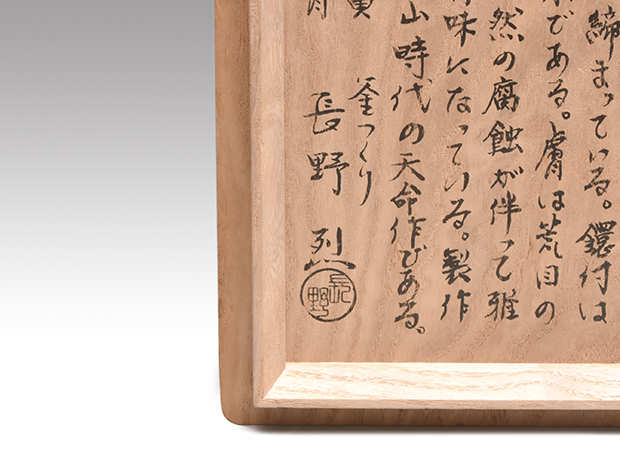 締まっている。鐶付は
である。膚は荒目の
然の腐蝕が伴って雅
味になっている。製作
山時代の天命作である。
釜つくり
長野烈
長野